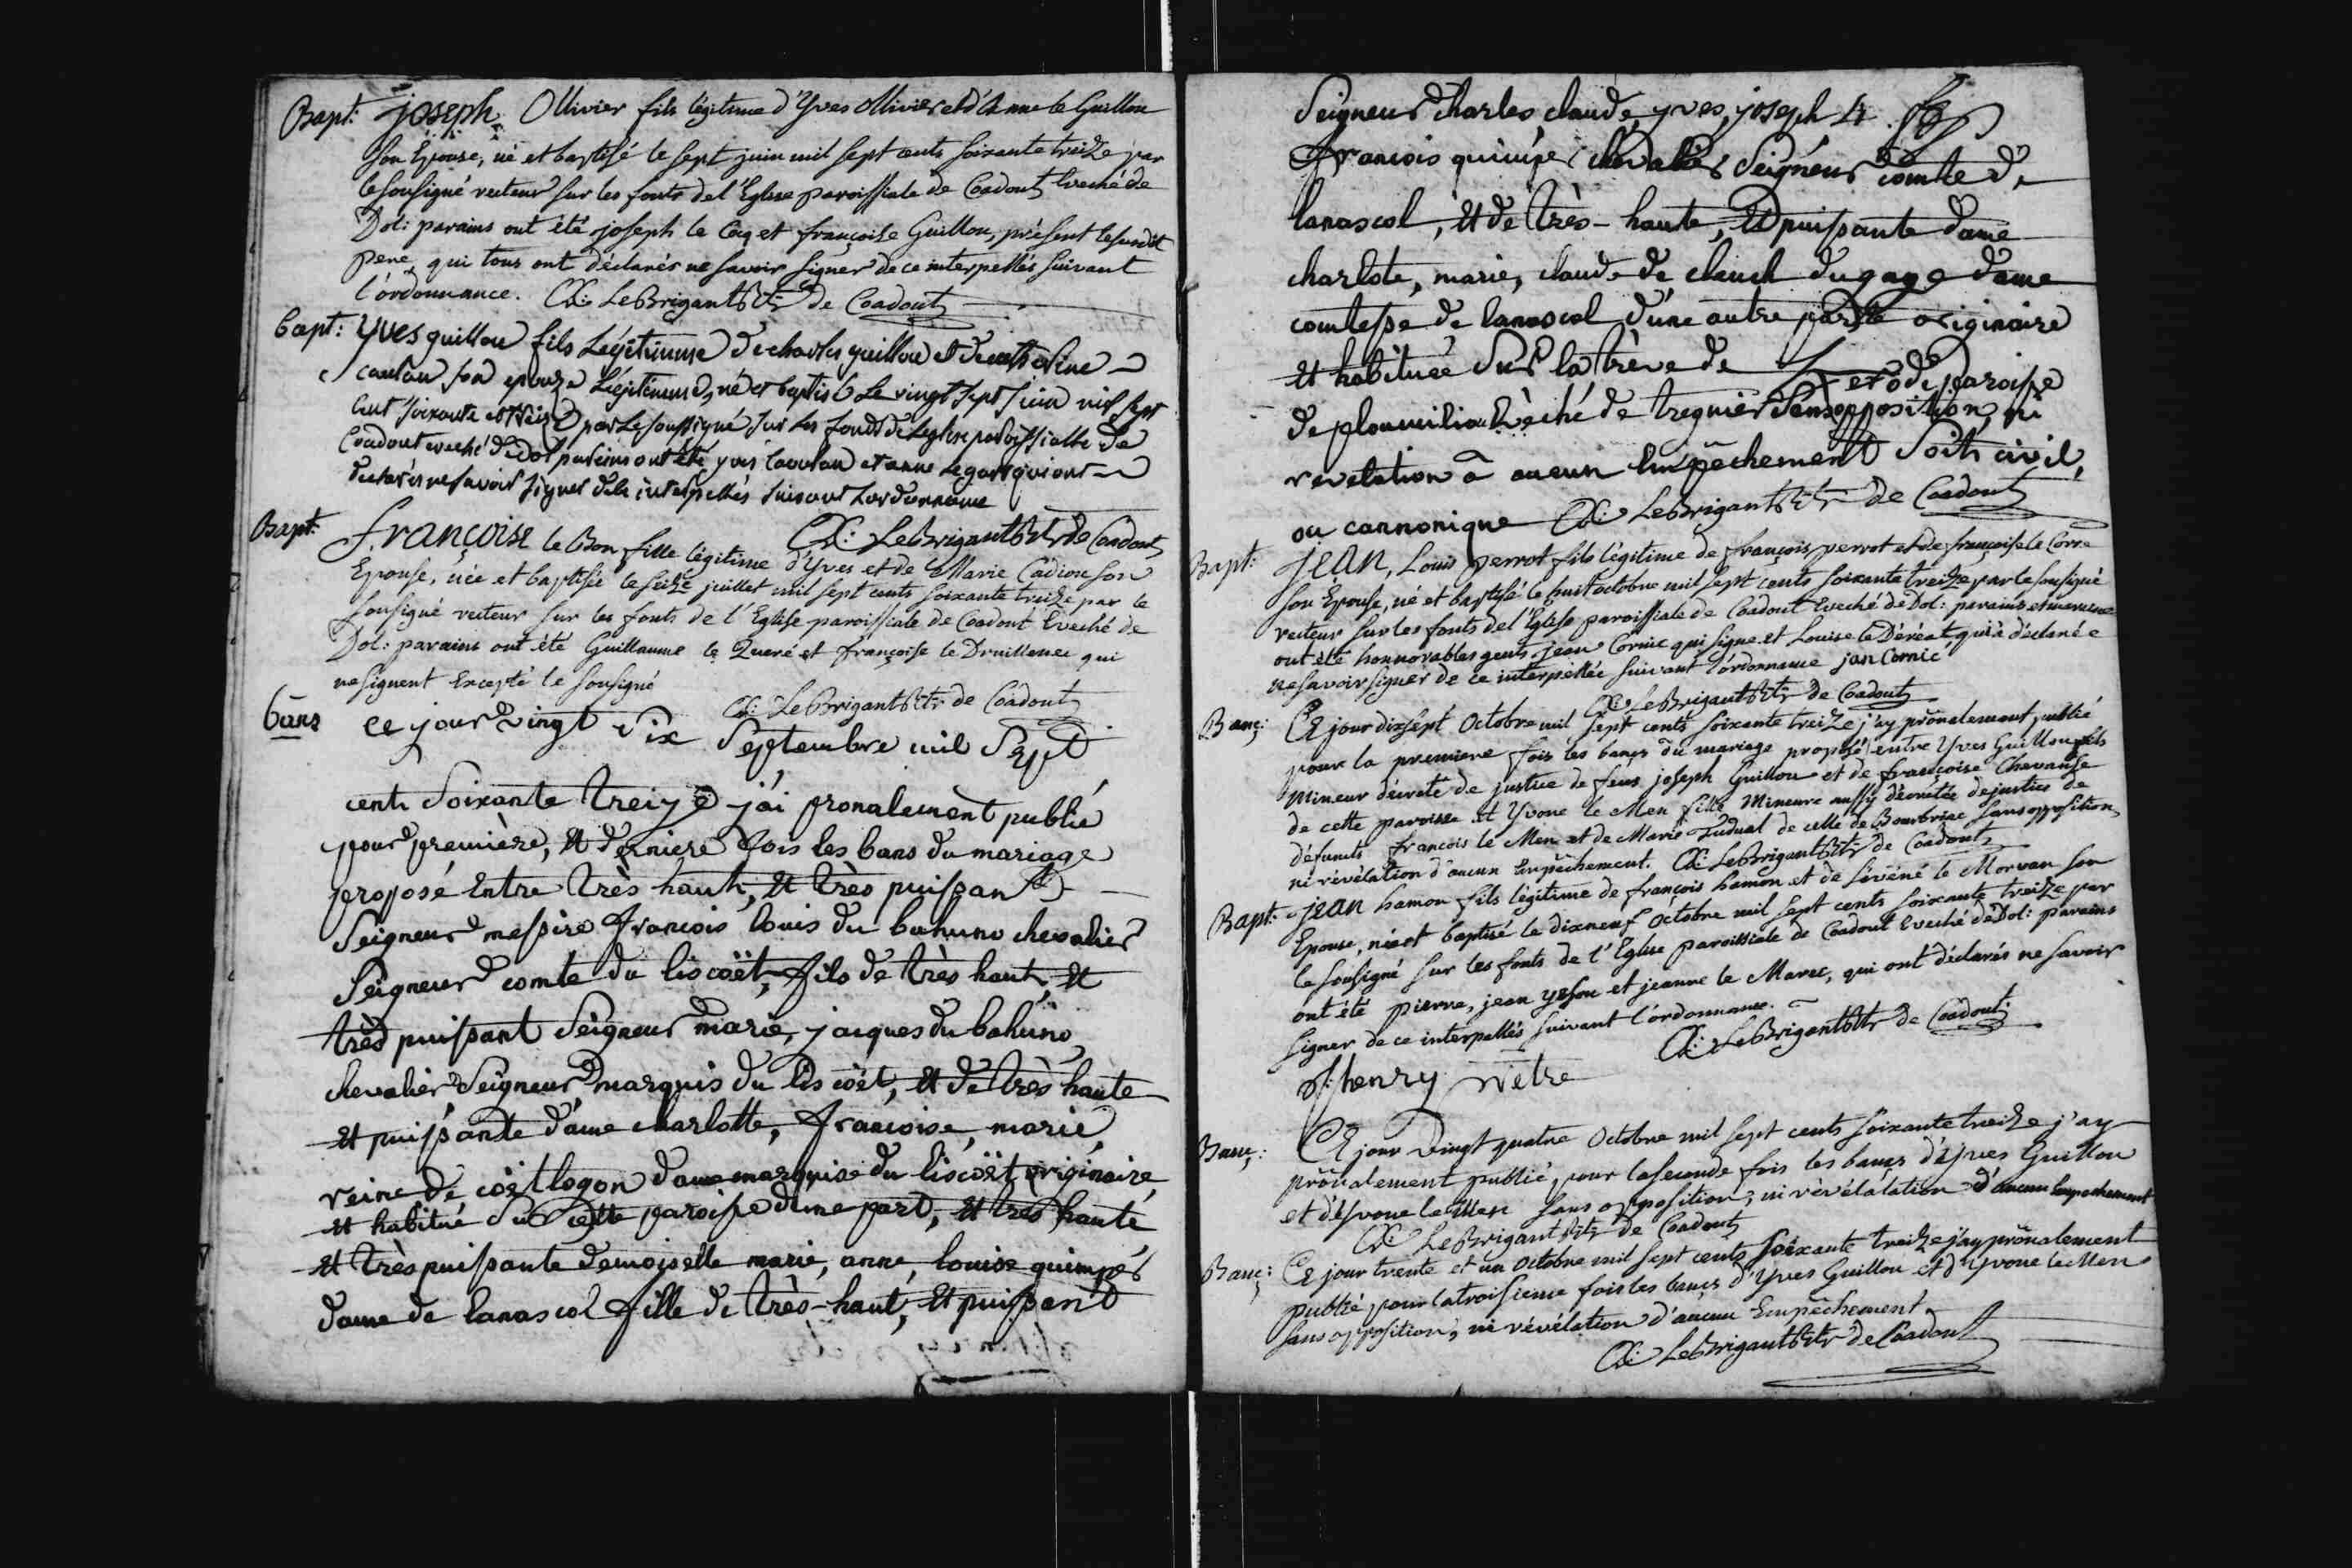 Bapt: joseph Ollivier fils légitime d'Yves Ollivier et d'Anne le Guillou
son Epouse, né et baptisé le sept juin mil sept cents soixante treize par
le sousigné recteur sur les fonts de l'Eglise paroissiale de Coadout Eveché de
Dol: parains ont été joseph le Coq et françoise Guillou, présent le susdit
pere qui tous ont déclarés ne savoir signer de ce interpellés suivant
l'ordonnance. LeBrigant Rtr de Coadout
bapt: yves guillou fils Légitimme de charles guillou et de
coulau son epouze Légitimme, né et baptisé Le vingt sept juin mil sept
cent soixante et treize par Le soussigné sur Les fonds de L'eglise paroissialle de
Coadout eveché de dol parains ont été yves Coulau et anne Le qui ont
declarés ne savoir signer de le interpellés suivant Lordonnance
LeBrigant Rtr de Coadout
Bapt: françoise le Bon fille légitime d'Yves et de Marie Cadiou son
Epouse, née et baptisée le seize juillet mil sept cents soixante treize par le
sousigné recteur sur les fonts de l'Eglise paroissiale de Coadout Eveché de
Dol: parains ont été Guillaume le Queré et françoise le Druillenec qui
ne signent Excepté le sousigné
LeBrigant Rtr de Coadout
bans ce jour vingt six Septembre mil Sept
cents Soixante treize j'ai pronalement publié
pour première, Et derniere fois les bans du mariage
proposé Entre très haut, Et très puissant
Seigneur messire François louis du bahuno chevalier
Seigneur comte du liscoët, fils de très haut, Et
très puissant Seigneur marie, jacques du bahuno,
chevalier Seigneur marquis du liscoët, Et de très haute
Et puissante dame charlotte, Françoise, marie,
reine de coëtlogon dame marquise du liscoët originaire
Et habitué Sur cette paroisse d'une part, Et très haute
Et très puissante demoiselle marie, anne, louise quimper
dame de lanascol fille de très-haut, Et puissant
Seigneur charles, claude, yves, joseph 4
François quimper chevalier Seigneur comte de
lanascol, Et de très-haute, Et puissante dame
charlote, marie, claude de cleuch du gage dame
comtesse de lanascol d'une autre part originaire
Et habituée Sur la trève de paroisse
de ploumiliau Evêché de treguier Sans opposition, ni
revelation d'aucun Empêchement Soit civil,
ou cannonique LeBrigant Rtr de Coadout
Bapt: JEAN, Louis perrot fils légitime de françois perrot et de françoise le Corre
son Epouse, né et baptisé le huit octobre mil sept cents soixante treize par le sousigné
recteur sur les fonts de l'Eglise paroissiale de Coadout Eveché de Dol: parains et maraine
ont été honnorables gents jean Cornic qui signe et Louise le Déréat qui a déclarée
ne savoir signer de ce interpellée suivant l'ordonnance jan Cornic
LeBrigant Rtr de Coadout
Banç: CE jour dixsept Octobre mil sept cents soixante treize j'ay prônalement publié
pour la premiere fois les bancs du mariage proposé entre Yves Guillou fils
Mineur décreté de justice de feus joseph Guillou et de françoise Chevanse
de cette paroisse et Yvone le Men fille Mineure aussy décretée de justice de
défunts françois le Men et de Marie Tudual de celle de Bourbriac sans opposition,
ni révélation d'aucun Empêchement. LeBrigant Rtr de Coadout
Bapt: jean hamon fils légitime de françois hamon et de Sévéné le Morvan son
Epouse, né et baptisé le dixneuf Octobre mil sept cents soixante treize par
le sousigné sur les fonts de l'Eglise paroissiale de Coadout Eveché de Dol: parains
ont été pierre, jean yesou et jeanne le Marec, qui ont déclarés ne savoir
signer de ce interpellés suivant l'ordonnance.
LeBrigant Rtr de Coadout
f: henry
Banç: CE jour Vingt quatre Octobre mil sept cents soixante treize j'ay
prônalement publié, pour la seconde fois les bancs d'yves Guillou
et d'yvone le Men sans opposition, ni révélátation d'aucun Empechement
LeBrigant Rtr de Coadout
Banç: CE jour trente et un Octobre mil sept cents soixante treize j'ay prônalement
publié pour la troisieme fois les bancs d'Yves Guillou et d'Yvone le Men
sans opposition, ni révélation d'aucun Empêchement
LeBrigant Rtr de Coadout